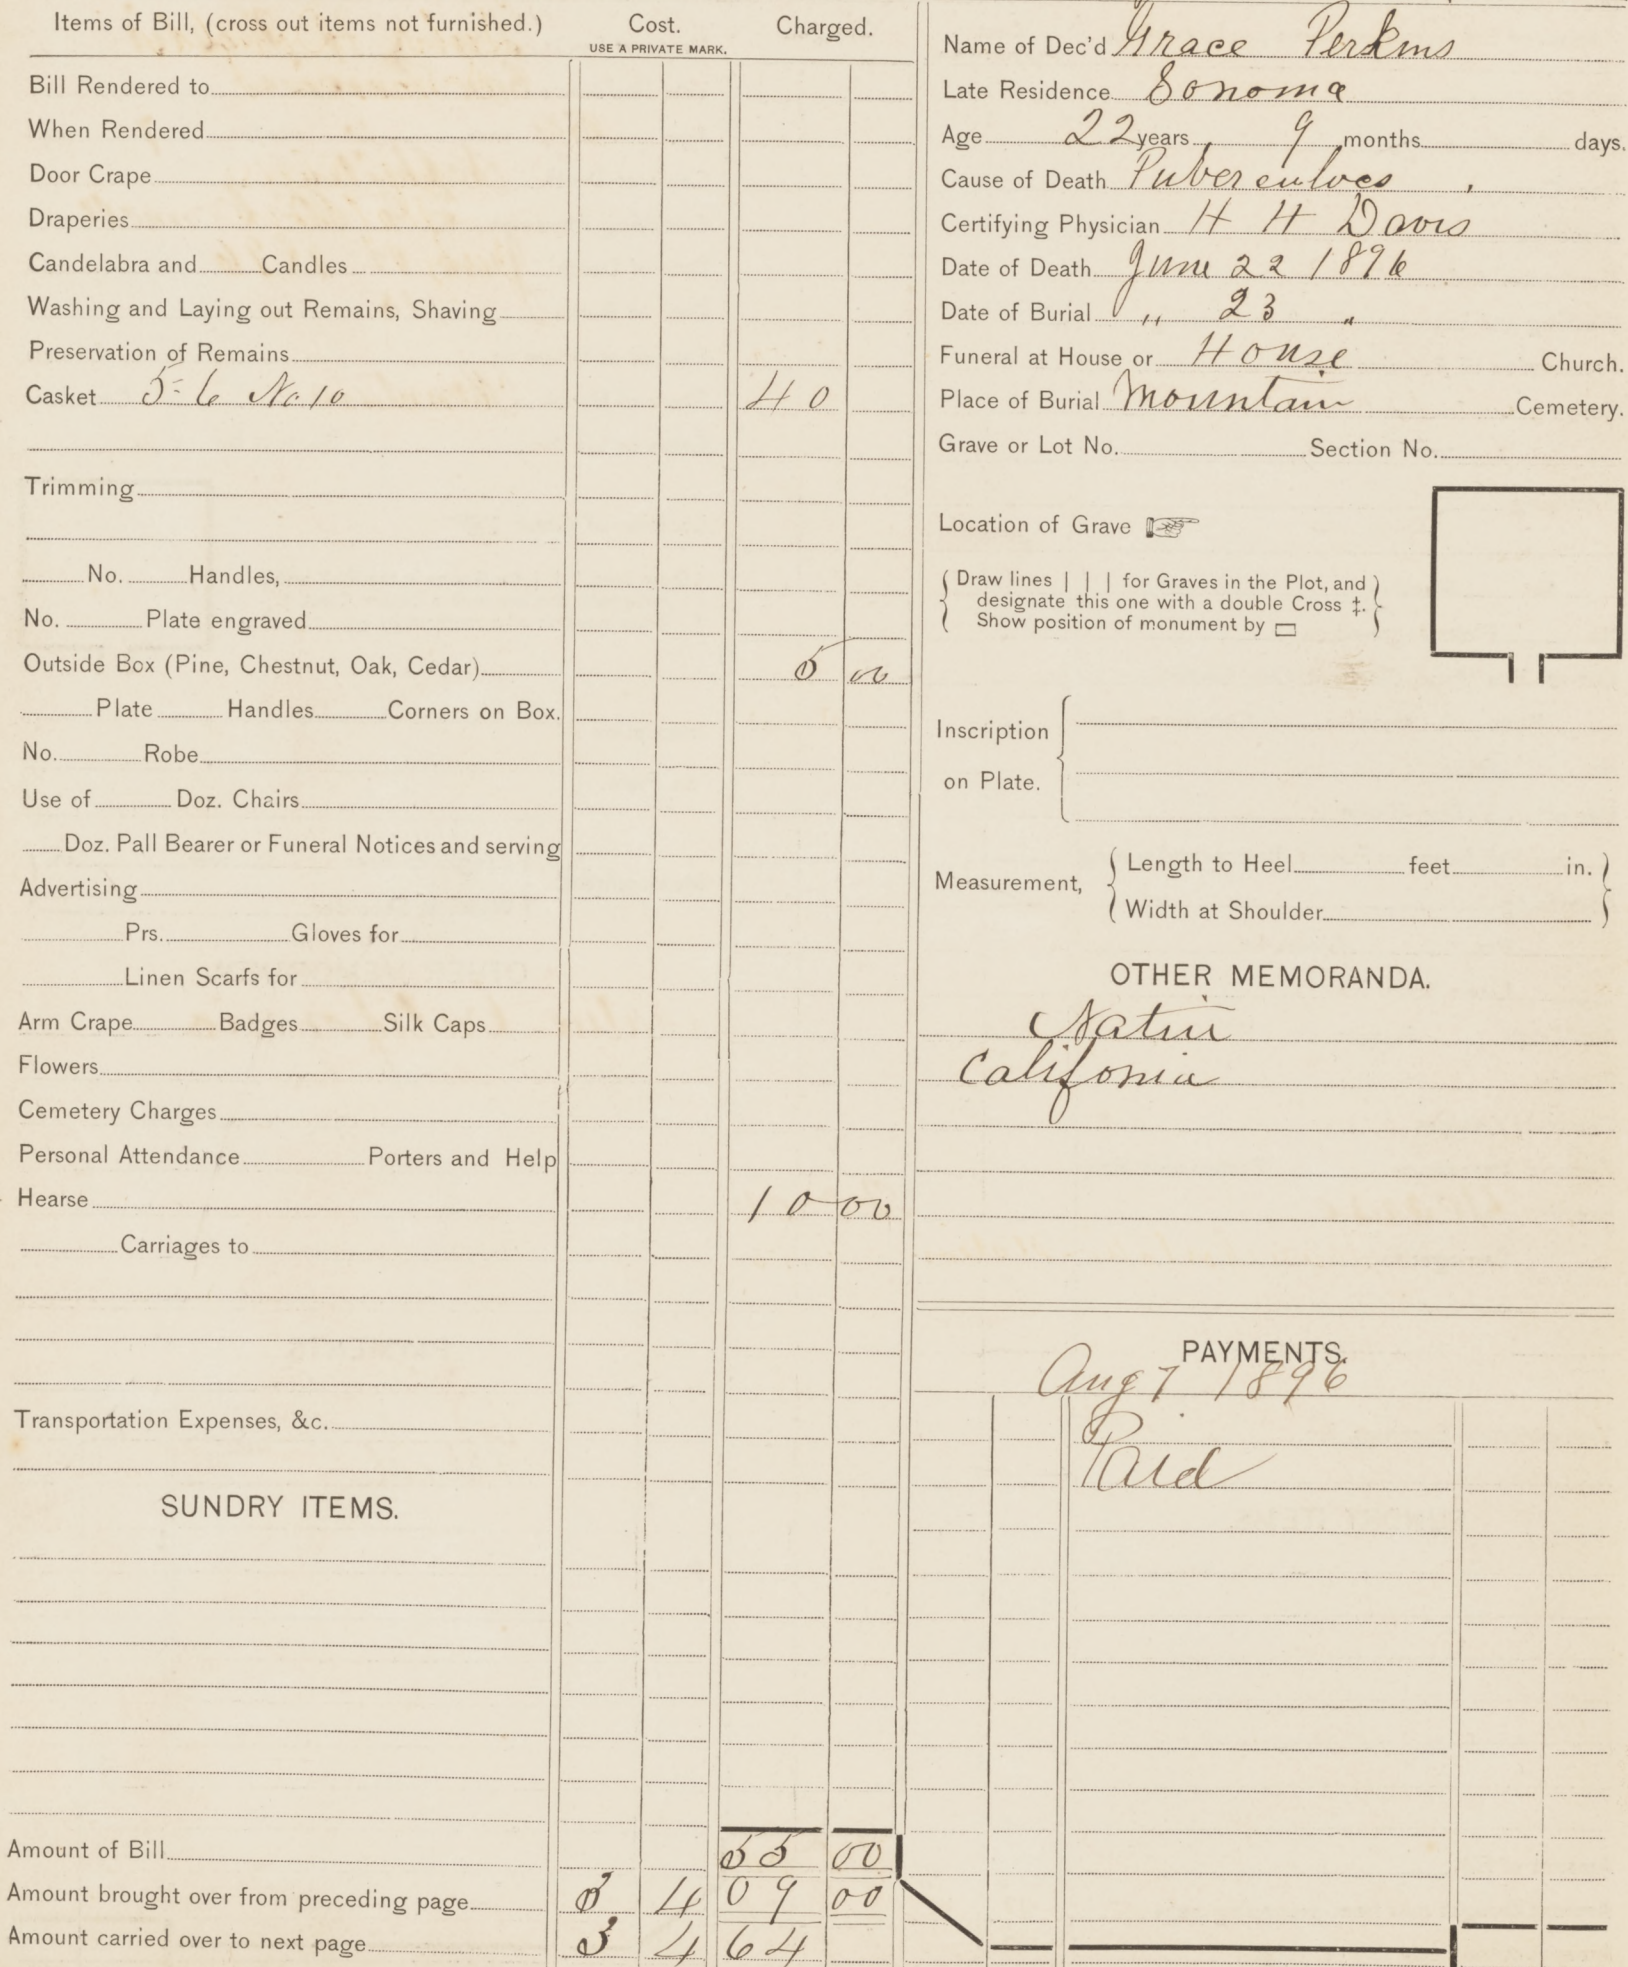 Items of Bill, (cross out items not furnished.) Cost. Charged.
USE A PRIVATE MARK.
Bill Rendered to
When Rendered
Door Crape
Draperies
Candelabra and Candles
Washing and Laying out Remains, Shaving
Preservation of Remains
Casket 5-6 No 10 40
Trimming
No. Handles,
No. Plate engraved
Outside Box (Pine, Chestnut, Oak, Cedar) 5 00
Plate Handles Corners on Box.
No. Robe
Use of Doz. Chairs
Doz. Pall Bearer or Funeral Notices and serving
Advertising
Prs. Gloves for
Linen Scarfs for
Arm Crape Badges Silk Caps
Flowers
Cemetery Charges
Personal Attendance Porters and Help
Hearse 10 00
Carriages to
Transportation Expenses, &c.
SUNDRY ITEMS.
Amount of Bill 55 00
Amount brought over from preceding page 3 4 09 00
Amount carried over to next page 3 4 64
Name of Dec'd Grace Perkins
Late Residence Sonoma
Age 22 years 9 months days.
Cause of Death Tuberculoes
Certifying Physician H H Davis
Date of Death June 22 1896
Date of Burial " 23 "
Funeral at House or House Church.
Place of Burial Mountain Cemetery.
Grave or Lot No. Section No.
Location of Grave ☞
Draw lines | | | for Graves in the Plot, and
designate this one with a double Cross ‡.
Show position of monument by ▭
Inscription
on Plate.
Measurement,
Length to Heel feet in.
Width at Shoulder
OTHER MEMORANDA.
Nativ
Califonia
PAYMENTS.
Aug 7 1896
Paid